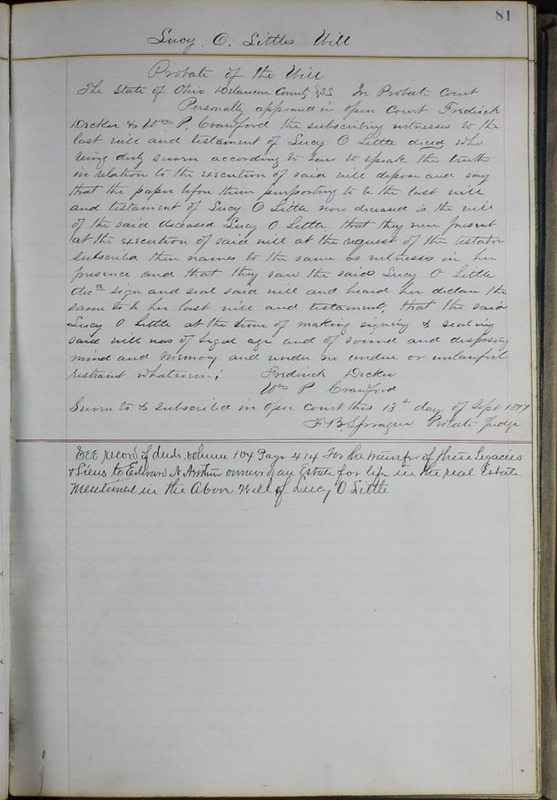 81
Lucy. O. Littles Will
Probate of the Will
The State of Ohio Delaware County SS In Probate Court
Personally appeared in open Court Fredrick
Decker & Wm P. Crawford the subscribing witnesses to the
last will and testament of Lucy O Little deced who
being duly sworn according to law to speak the truth
in relation to the execution of said will depose and say
that the paper before them purporting to be the last will
and testament of Lucy O Little now deceased is the will
of the said deceased Lucy O Little, that they were present
at the execution of said will at the request of the testator
subscribed their names to the same as witnesses in her
presence and that they saw the said Lucy O Little
decd sign and seal said will and heard her declare the
same to be her last will and testament, that the said
Lucy O Little at the time of making signing & sealing
said will was of legal age and of sound and disposing
mind and memory and under no undue or unlawful
restraint whatsoever;
Fredrick Decker
Wm P Crawford
Sworn to & subscribed in open court this 13th day of Sept
F B Sprague Probate Judge
SEE record of deeds volume 104 Page 414 For the transfer of these Legacies
& Liens to Edward N. owner of an Estate for life in the real Estate
Mentioned in the Above Will of Lucy O Little